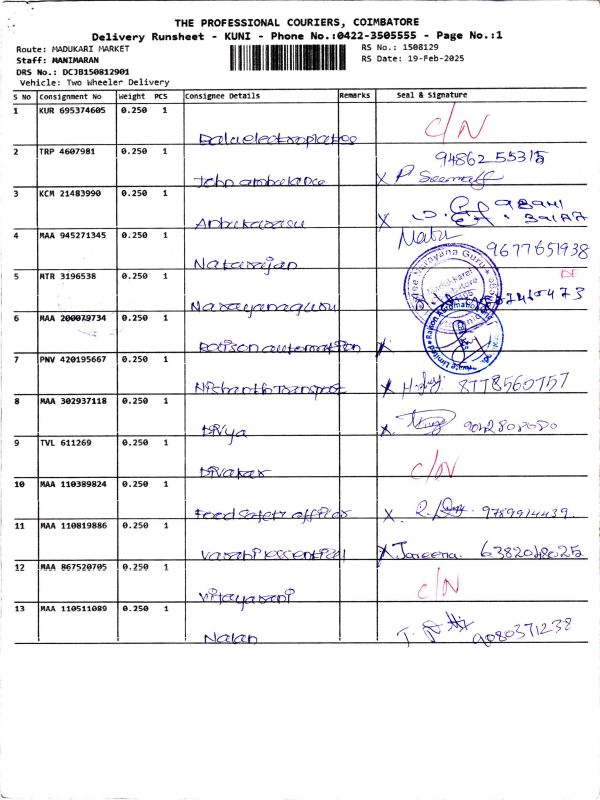 THE PROFESSIONAL COURIERS, COIMBATORE
Delivery Runsheet - KUNI - Phone No.:0422-3505555 - Page No.:1
Route: MADUKARI MARKET
RS No.: 1508129
Staff: MANIMARAN
RS Date: 19-Feb-2025
DRS No.: DCJB150812901
Vehicle: Two Wheeler Delivery
S No Consignment No Weight PCS Consignee Details Remarks Seal & Signature
1 KUR 695374605 0.250 1 C/N
2 TRP 4607981 0.250 1 John ambulance 94862 55315
3 KCM 21483990 0.250 1
4 MAA 945271345 0.250 1 Natarajan 9677651938
5 MTR 3196538 0.250 1 Narayanaguru
6 MAA 200079734 0.250 1 automation
7 PNV 420195667 0.250 1 8778560757
8 MAA 302937118 0.250 1 Divya
9 TVL 611269 0.250 1 Divakar C/N
10 MAA 110389824 0.250 1 Food safety officer 9789914439
11 MAA 110819886 0.250 1
12 MAA 867520705 0.250 1 Vijayarani C/N
13 MAA 110511089 0.250 1 Nalan 9080371238